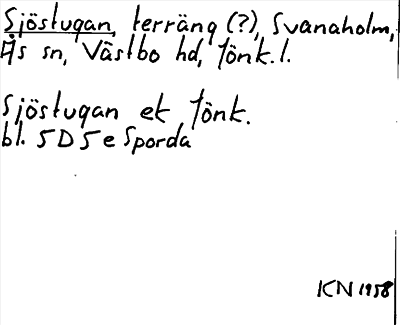 Sjöstugan, terräng (?), Svanaholm,
Ås sn, Västbo hd, Jönk. l.
Sjöstugan et Jönk.
bl. 5D5e Sporda
KN 1958